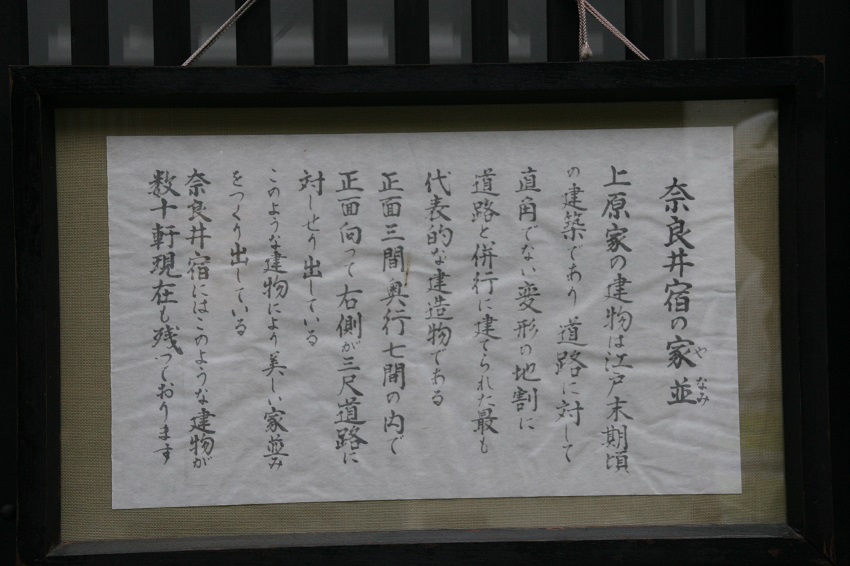 奈良井宿の家並
やなみ
上原家の建物は江戸末期頃
の建築であり 道路に対して
直角でない変形の地割に
道路と併行に建てられた最も
代表的な建造物である
正面三間奥行七間の内で
正面向って右側が三尺道路に
対しせり出している
このような建物により美しい家並み
をつくり出している
奈良井宿にはこのような建物が
数十軒現在も残っております